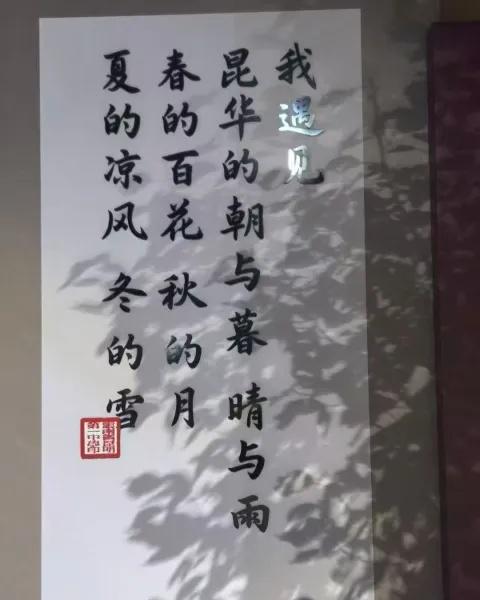 我遇见
昆华的朝与暮 晴与雨
春的百花 秋的月
夏的凉风 冬的雪